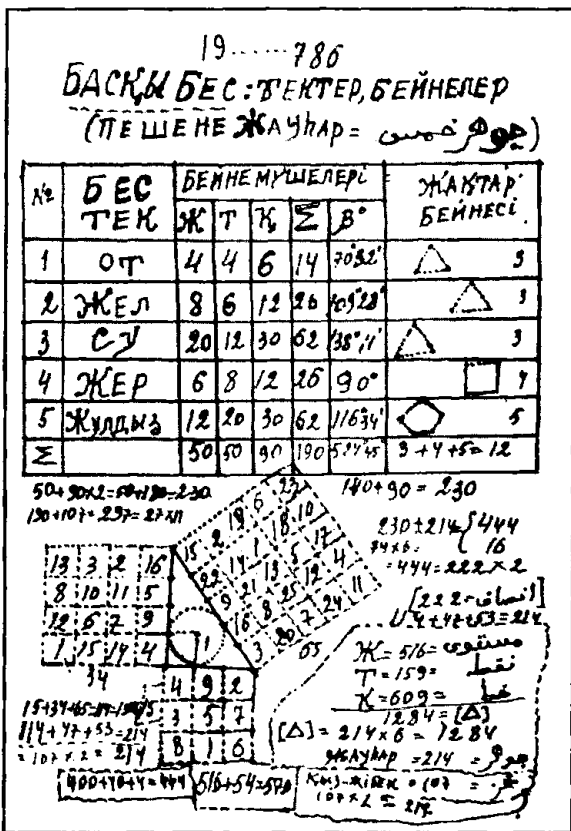 19 ...... 786
БАСҚЫ БЕС: ТЕКТЕР, БЕЙНЕЛЕР
(ПЕШЕНЕ ЖАУҺАР = جوهر خمسى)
№ БЕС ТЕК БЕЙНЕ МҮШЕЛЕРІ ЖАҚТАР БЕЙНЕСІ
Ж Т Қ Σ β°
1 ОТ 4 4 6 14 70°32' 3
2 ЖЕЛ 8 6 12 26 109°28' 3
3 СУ 20 12 30 62 138°11' 3
4 ЖЕР 6 8 12 26 90° 4
5 ЖҰЛДЫЗ 12 20 30 62 116°34' 5
Σ 50 50 90 190 524°45' 3+4+5=12
50+90×2=50+180=230
140+90=230
190+107=297=27×11
230±214={444
16
74×6=
=444=222×2
[222=انصاف]
114+47+53=214
13 3 2 16
8 10 11 5
12 6 7 9
1 15 14 4
34
15 2 19 6 23
22 14 1 18 10
9 21 13 5 17
16 8 25 12 4
3 20 7 24 11
65
1
4 9 2
3 5 7
8 1 6
114+47+53=214
=107×2=214
400+40+4=444
516+54=570
Ж=516= مستوى
Т=159= نقط
Қ=609= خط
1284=[Δ]
[Δ]=214×6=1284
ЖАУҺАР=214= جوهر
ҚЫЗ-ЖІБЕК=107=
107×2=214